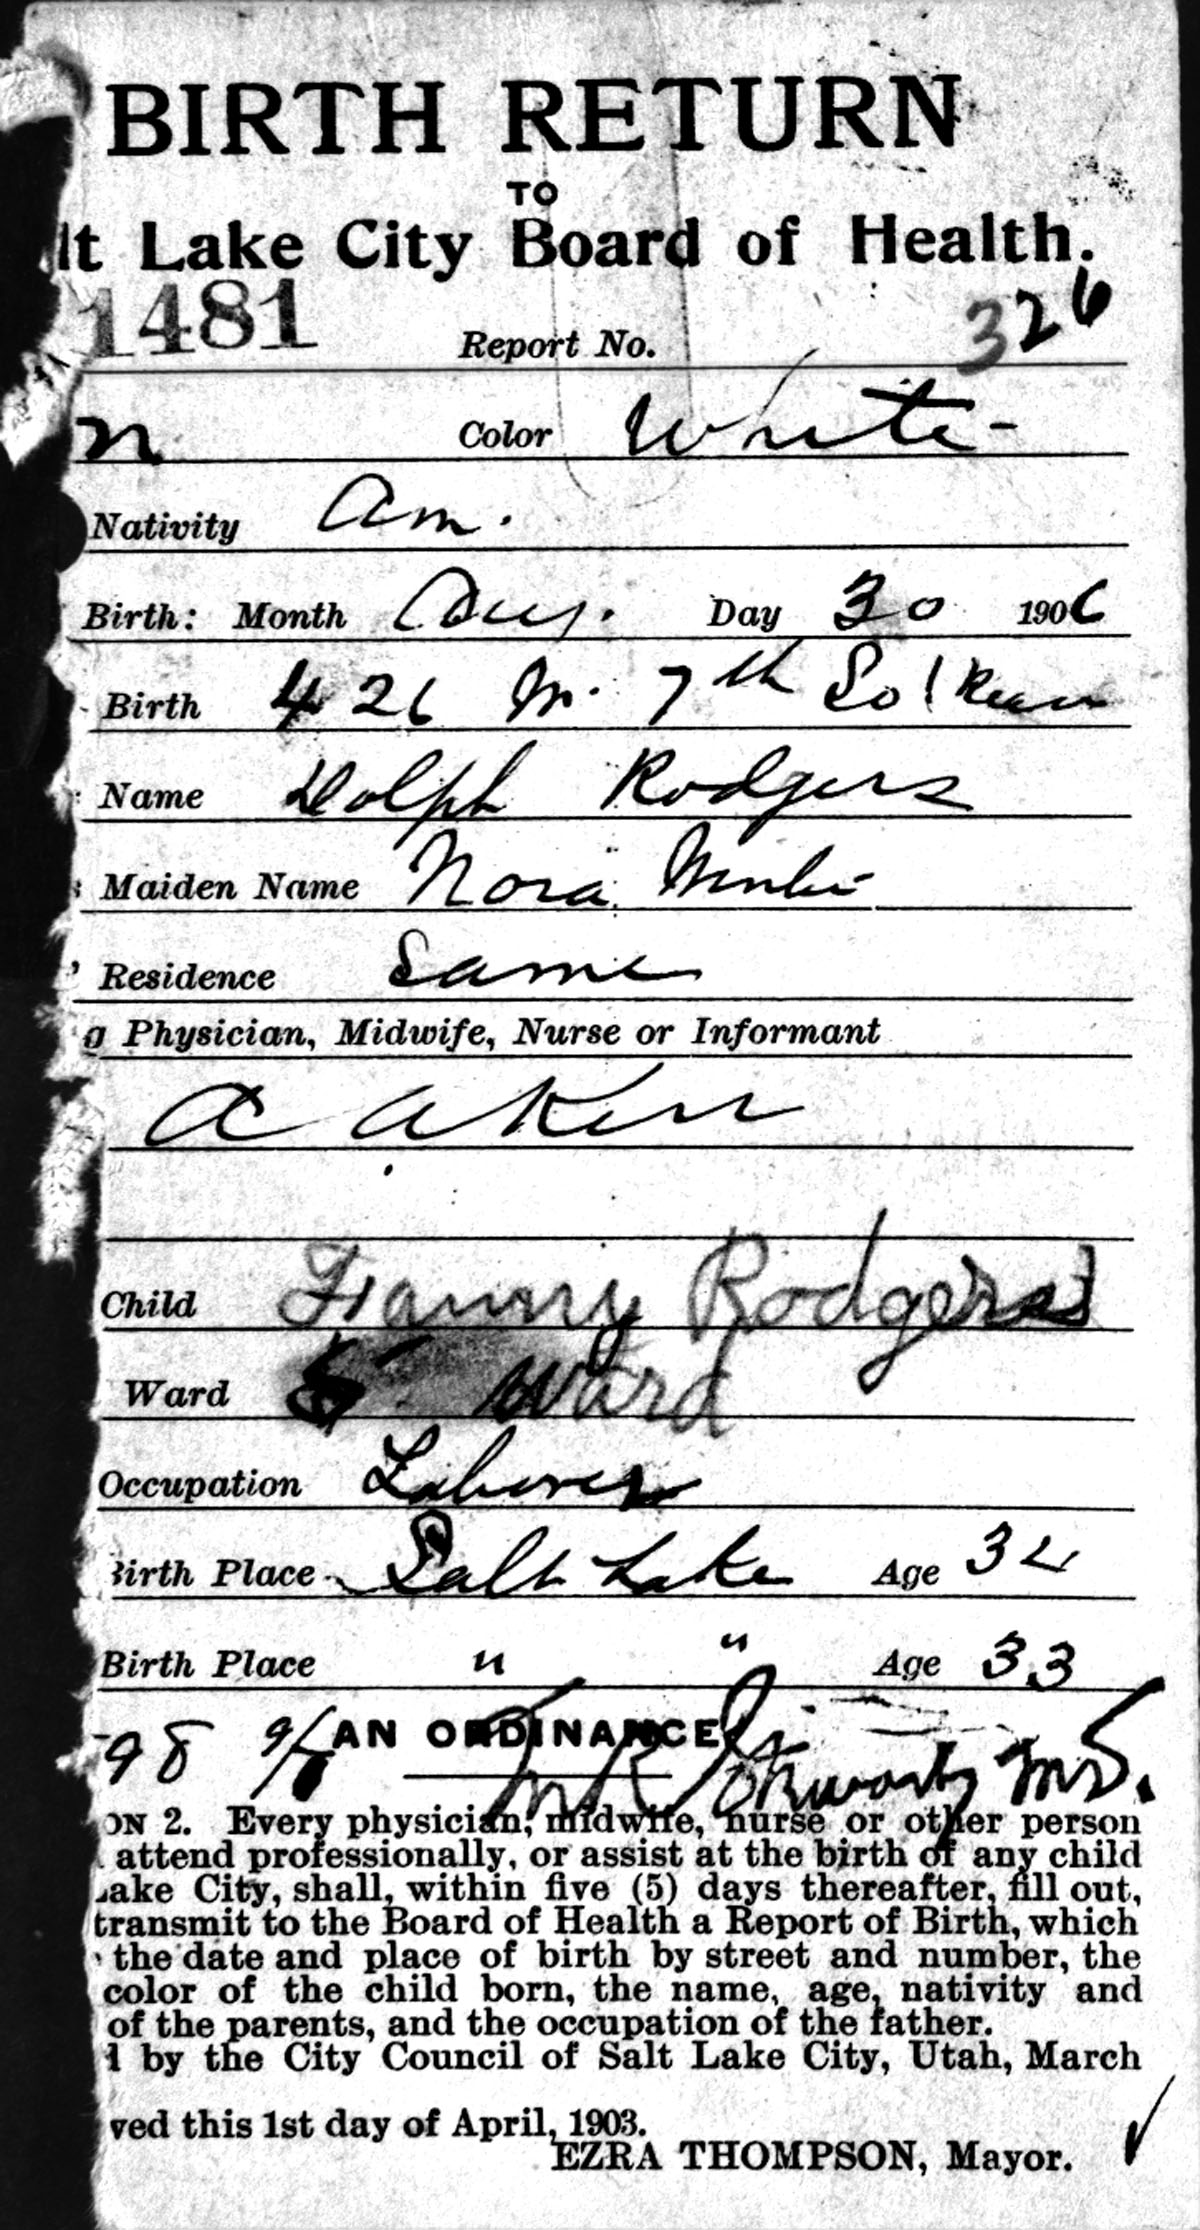 BIRTH RETURN
TO
lt Lake City Board of Health.
1481 Report No. 326
n Color White-
Nativity Am.
Birth: Month Aug. Day 30 1906
Birth 426 W. 7th So! Rear
Name Dolph Rodgers
Maiden Name Nora
Residence Same
g Physician, Midwife, Nurse or Informant
A Aken
Child Franny Rodgers
Ward 5 Ward
Occupation Laborer
Birth Place Salt Lake Age 32
Birth Place " " Age 33
98 AN ORDINANCE M.D.
ON 2. Every physician, midwife, nurse or other person
attend professionally, or assist at the birth of any child
Lake City, shall, within five (5) days thereafter, fill out,
transmit to the Board of Health a Report of Birth, which
the date and place of birth by street and number, the
color of the child born, the name, age, nativity and
of the parents, and the occupation of the father.
d by the City Council of Salt Lake City, Utah, March
ved this 1st day of April, 1903.
EZRA THOMPSON, Mayor.